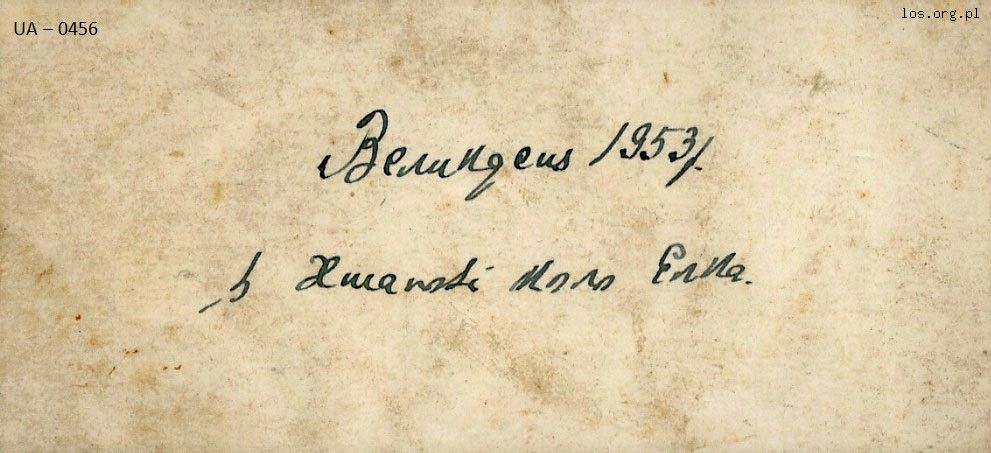 UA – 0456
los.org.pl
Великдень 1953р.
в Хшанові коло Елка.